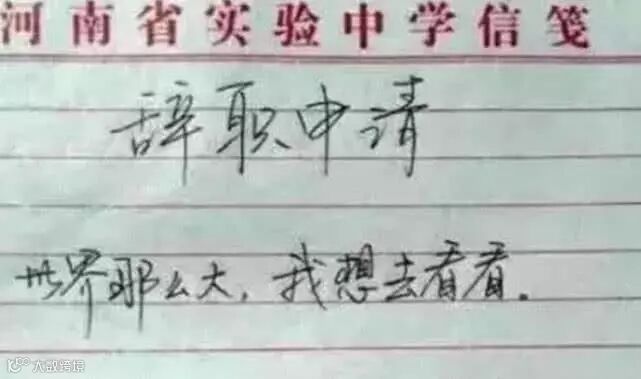 河南省实验中学信笺
辞职申请
世界那么大，我想去看看。
大数跨境